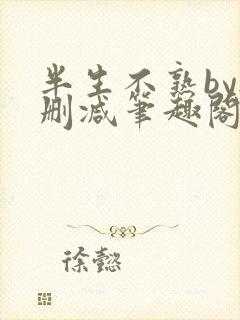 半生不熟by
删减笔趣阁
徐懿